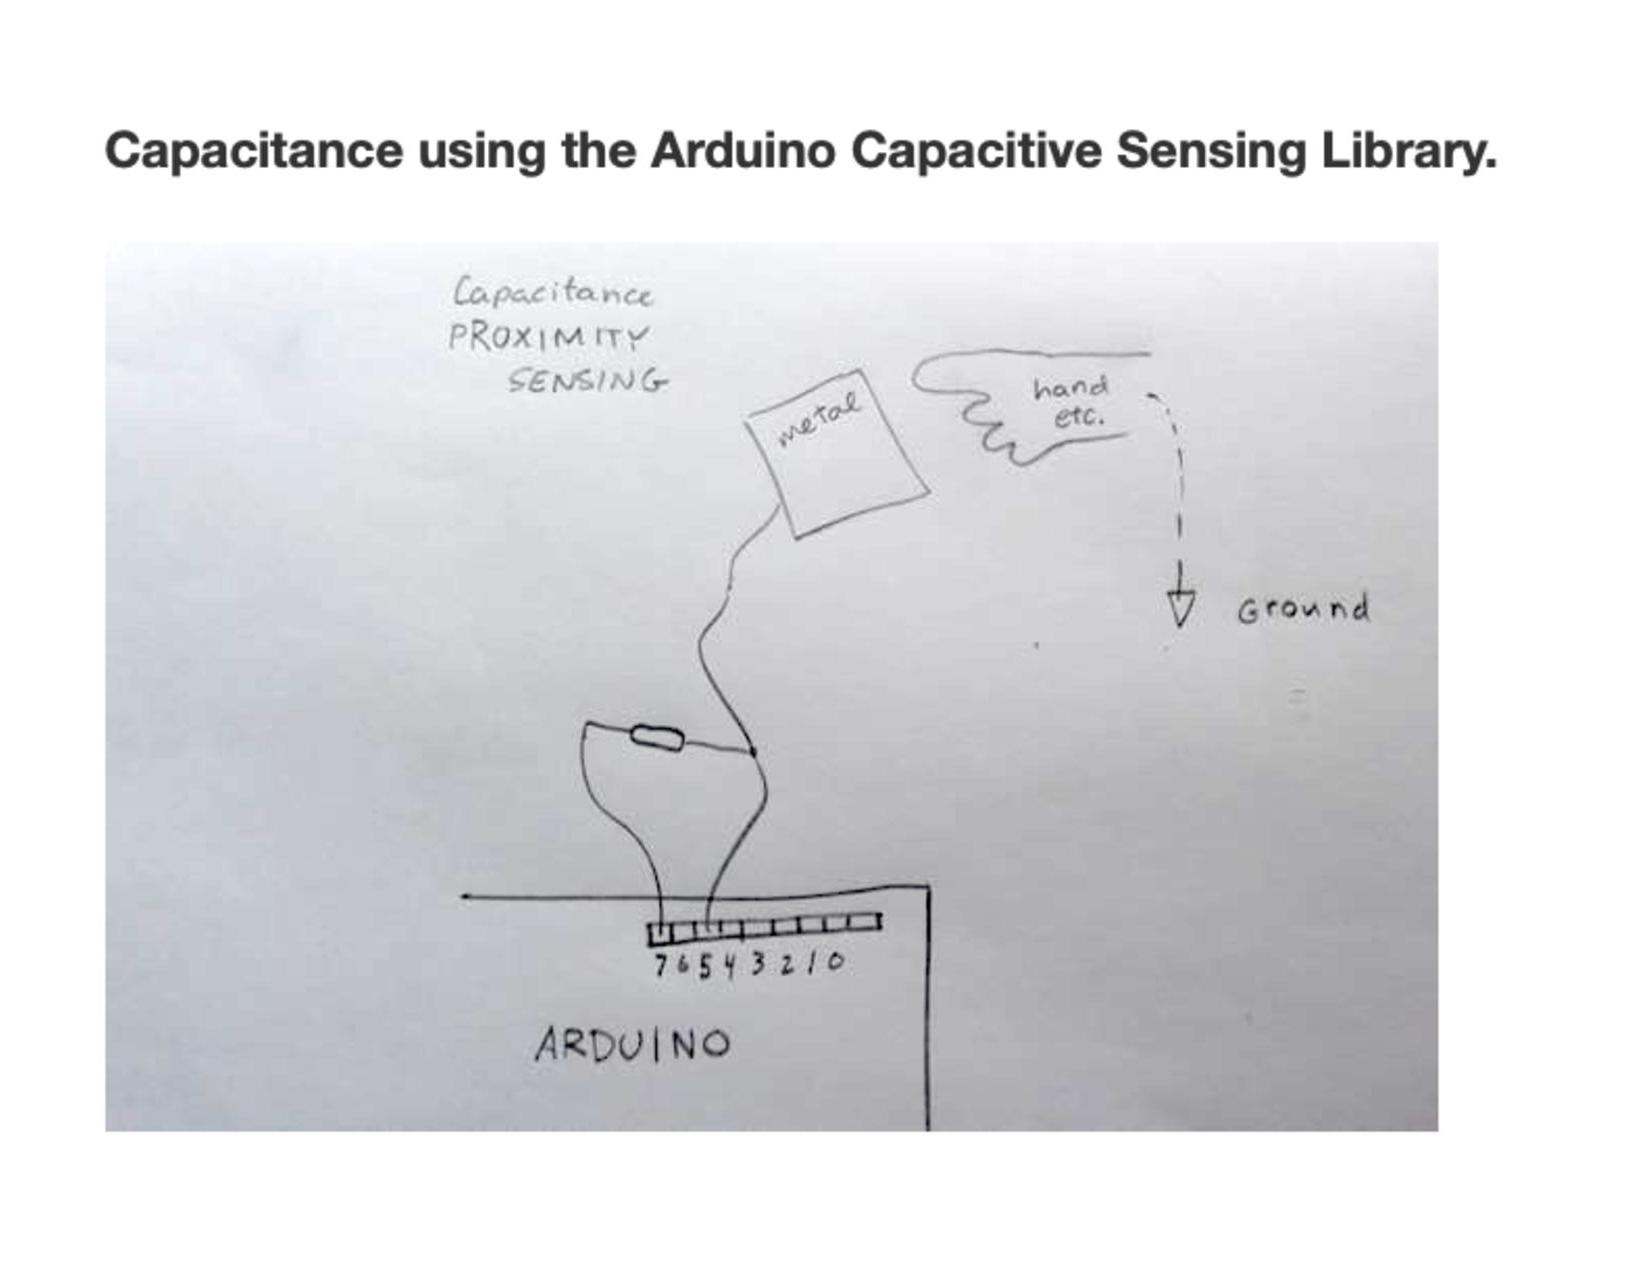 Capacitance using the Arduino Capacitive Sensing Library.
Capacitance
PROXIMITY
SENSING
metal
hand
etc.
Ground
7 6 5 4 3 2 1 0
ARDUINO